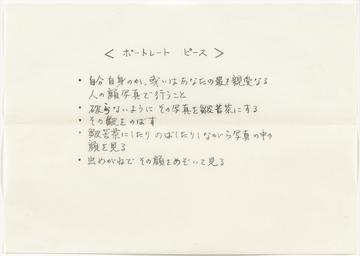 < ポートレート ピース >
・自分自身のか、或いはあなたの最も親愛なる
人の顔写真で行うこと
・破らないように その写真を皺苦茶にする
・その皺をのばす
・皺苦茶にしたり のばしたりしながら写真の中の
顔を見る
・虫めがねで その顔をのぞいて見る